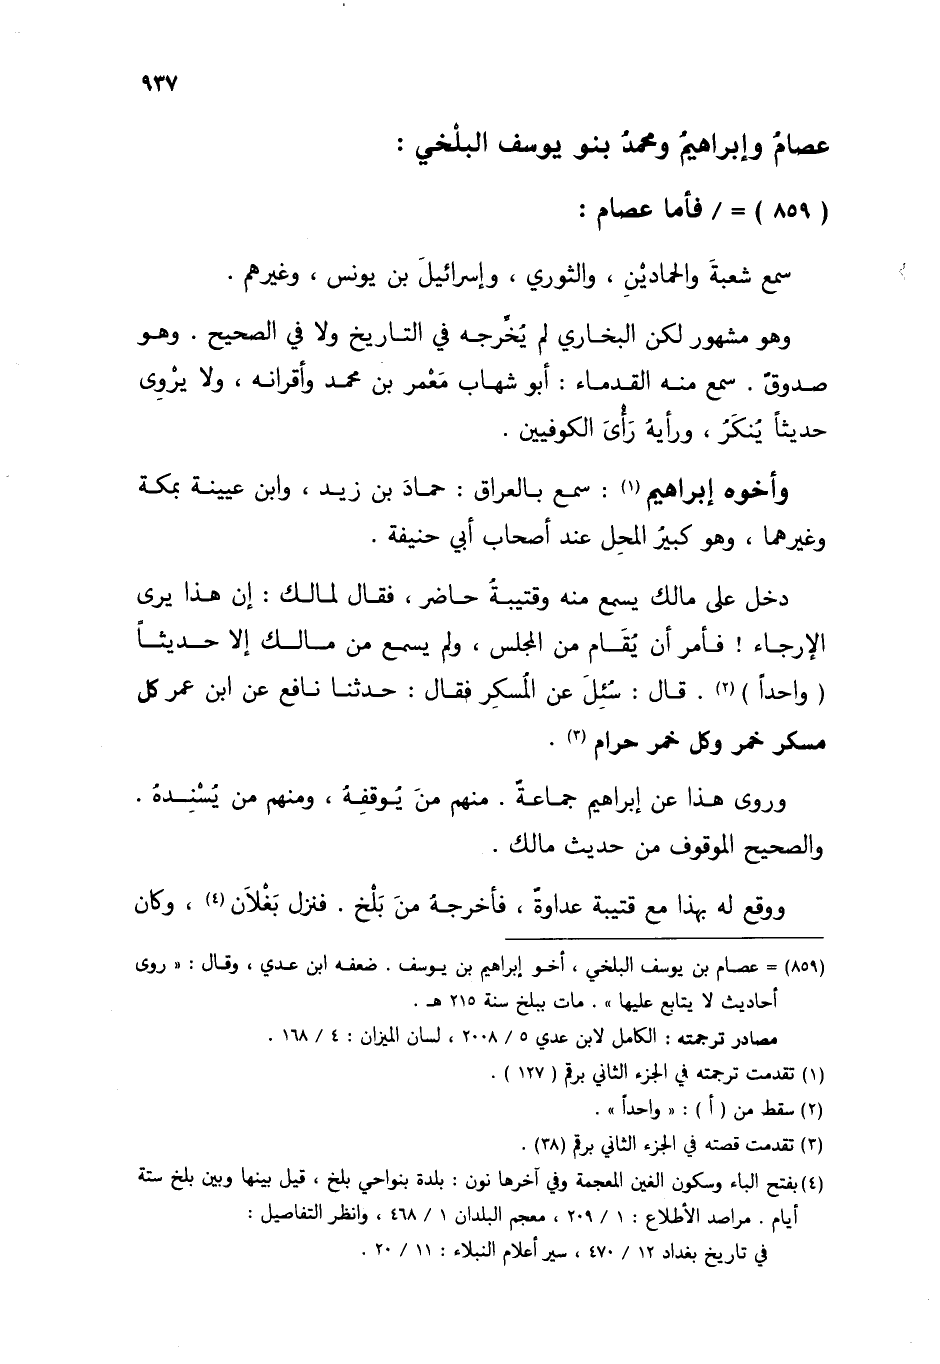 ٩٣٧
عصامُ وإبراهيمُ ومحمدُ بنو يوسف البلْخي :
( ٨٥٩ ) = / فأما عصام :
سمع شعبةَ والحمادَيْنِ ، والثوري ، وإسرائيلَ بن يونس ، وغيرهم .
وهو مشهور لكن البخاري لم يُخَّرجه في التاريخ ولا في الصحيح . وهو
صدوقٌ . سمع منه القدماء : أبو شهاب مَعْمر بن محمد وأقرانه ، ولا يرْوِى
حديثاً يُنكَرُ ، ورأيهُ رَأْىُ الكوفيين .
وأخوه إبراهيم (١) : سمع بالعراق : حمادَ بن زيد ، وابن عيينة بمكة
وغيرهما ، وهو كبيرُ المحِل عند أصحاب أبي حنيفة .
دخل على مالك يسمع منه وقتيبةُ حاضر ، فقال لمالك : إن هذا يرى
الإرجاء ! فأمر أن يُقَام من المجلس ، ولم يسمع من مالك إلا حديثاً
( واحداً ) (٢) . قال : سُئِلَ عن المُسكِر فقال : حدثنا نافع عن ابن عمر كل
مسكر خمر وكل خمر حرام (٣) .
وروى هذا عن إبراهيم جماعةٌ . منهم منَ يُوقفِهُ ، ومنهم من يُسْنِدهُ .
والصحيح الموقوف من حديث مالك .
ووقع له بهذا مع قتيبة عداوةٌ ، فأخرجهُ منَ بَلْخ . فنزل بَغْلَان (٤) ، وكان
(٨٥٩) = عصام بن يوسف البلخي ، أخو إبراهيم بن يوسف . ضعفه ابن عدي ، وقال : « روى
أحاديث لا يتابع عليها » . مات ببلخ سنة ٢١٥ هـ .
مصادر ترجمته : الكامل لابن عدي ٥ / ٢٠٠٨ ، لسان الميزان : ٤ / ١٦٨ .
(١) تقدمت ترجمته في الجزء الثاني برقم ( ١٢٧ ) .
(٢) سقط من ( أ ) : « واحداً » .
(٣) تقدمت قصته في الجزء الثاني برقم (٣٨) .
(٤) بفتح الباء وسكون الغين المعجمة وفي آخرها نون : بلدة بنواحي بلخ ، قيل بينها وبين بلخ ستة
أيام . مراصد الأطلاع : ١ / ٢٠٩ ، معجم البلدان ١ / ٤٦٨ ، وانظر التفاصيل :
في تاريخ بغداد ١٢ / ٤٧٠ ، سير أعلام النبلاء : ١١ / ٢٠ .